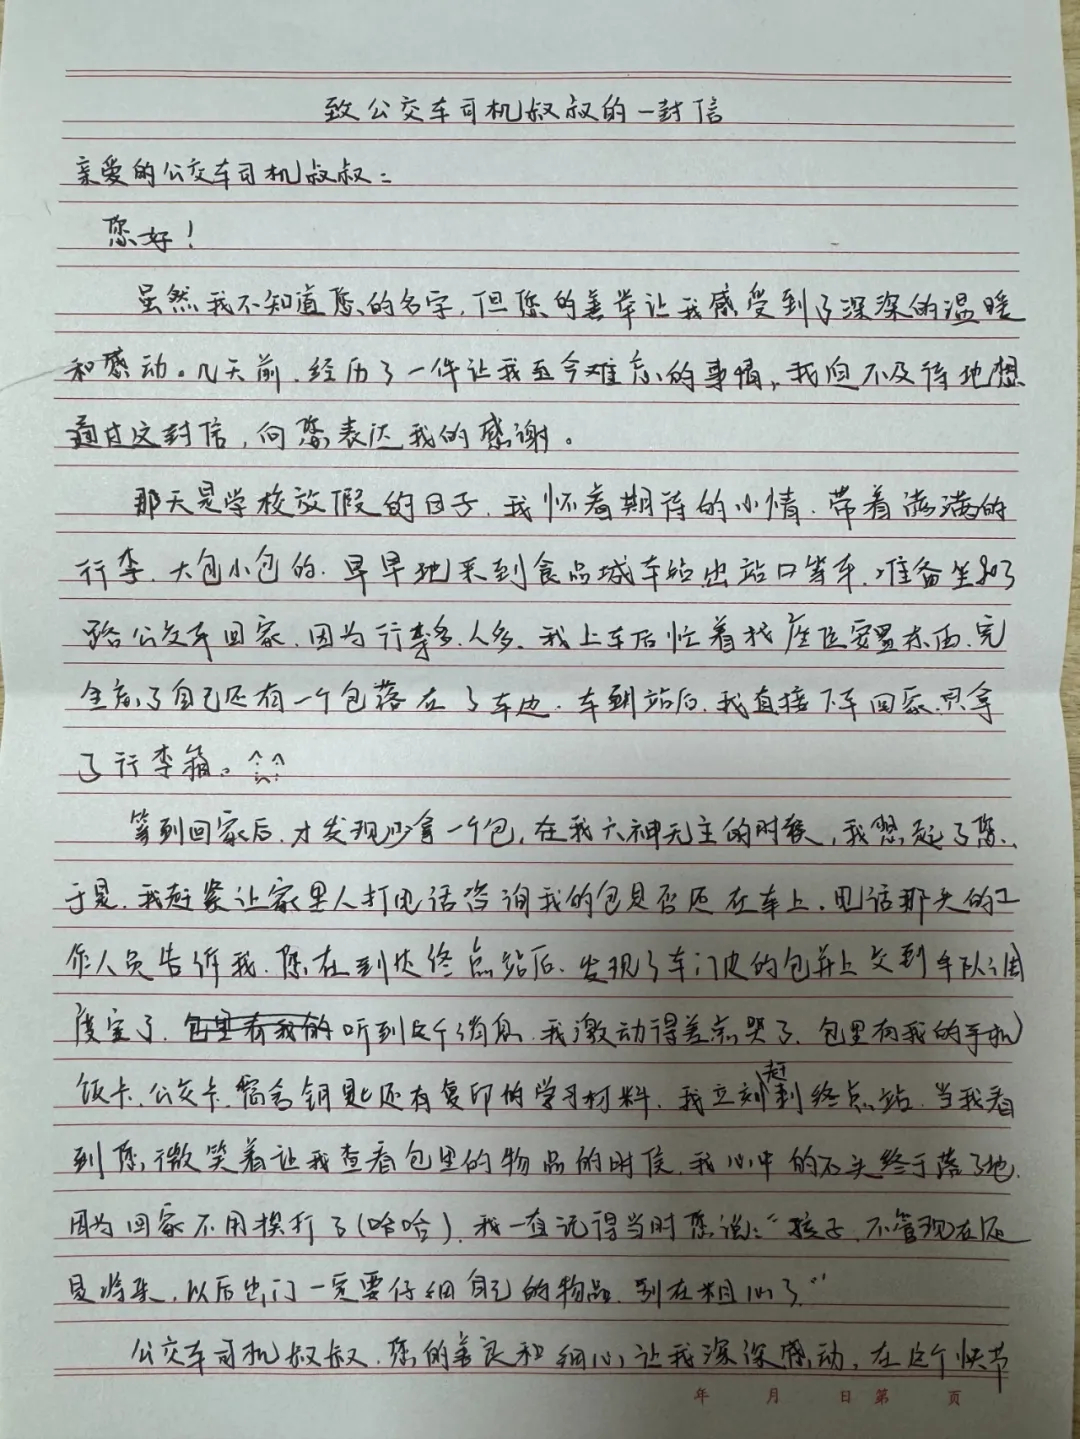 致公交车司机叔叔的一封信
亲爱的公交车司机叔叔:
您好!
虽然我不知道您的名字,但您的善举让我感受到了深深的温暖
和感动。几天前,经历了一件让我至今难忘的事情,我迫不及待地想
通过这封信,向您表达我的感谢。
那天是学校放假的日子,我怀着期待的心情,带着满满的
行李,大包小包的,早早地来到食品城车站出站口等车,准备坐
路公交车回家,因为行李多,人多,我上车后忙着找座位安置东西,完
全忘了自己还有一个包落在了车边,车到站后,我直接下车回家,只拿
了行李箱。
等到回家后,才发现少拿一个包,在我六神无主的时候,我想起了您,
于是,我赶紧让家里人打电话咨询我的包是否还在车上,电话那头的工
作人员告诉我,您在到达终点站后,发现了车门边的包并上交到车队调
度室了,包里有我的听到这个消息,我激动得差点哭了,包里有我的手机
饭卡、公交卡、宿舍钥匙还有复印的学习材料,我立刻赶到终点站,当我看
到您微笑着让我查看包里的物品的时候,我心中的石头终于落了地,
因为回家不用挨打了(哈哈),我一直记得当时您说:“孩子,不管现在还
是将来,以后出门一定要仔细自己的物品,别在粗心了”
公交车司机叔叔,您的善良和细心让我深深感动,在这个快节
年 月 日 第 页